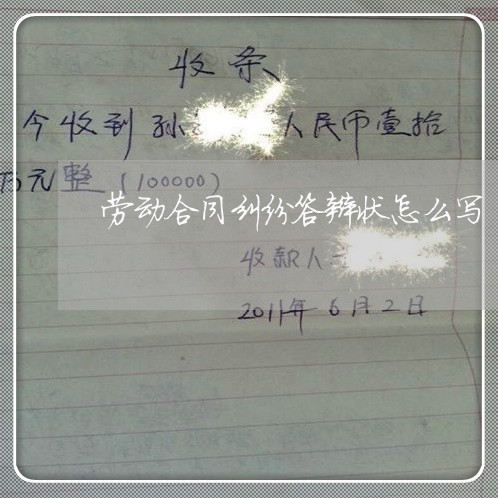 收条
今收到孙 人民币壹拾
万元整(100000)
劳动合同纠纷答辩状怎么写
收款人
2011年6月2日